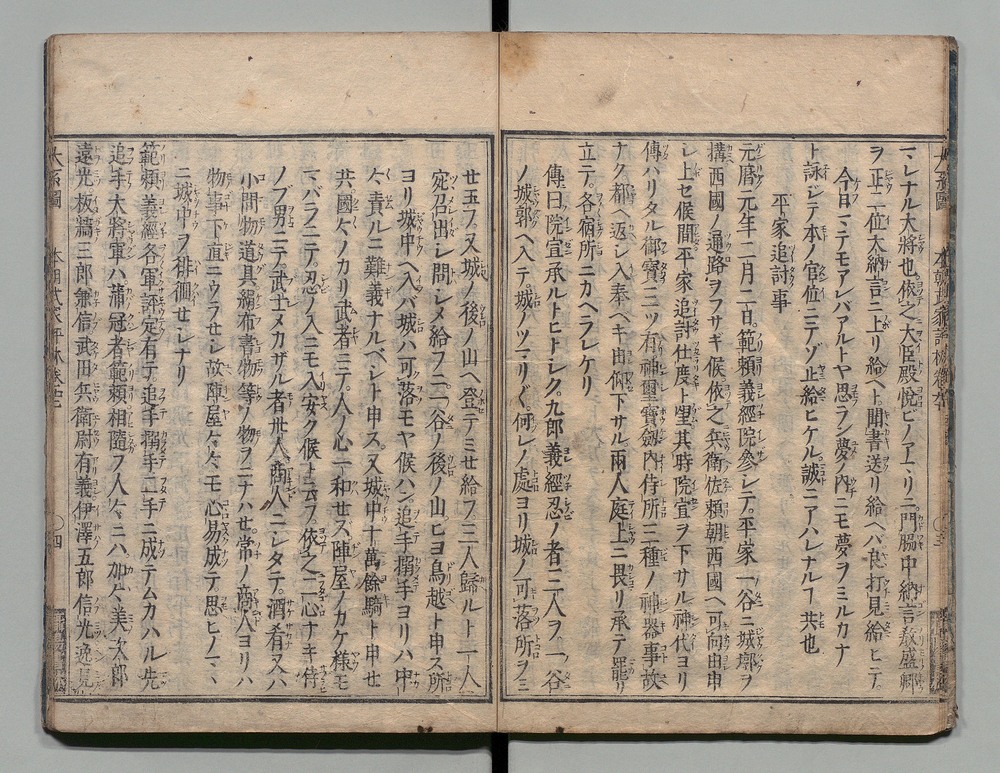 ヽシナル大將也依之大臣殿悦ビノアマリニ門脇中納言教盛卿
ヲ正二位大納言ニ上リ給ヘト聞書送リ給ヘバ良打見給ヒテ
今日マデモアレバアルトヤ思ラン夢ノ内ニモ夢ヲミルカナ
ト詠シテ本ノ官位ニテゾ止給ヒケル誠ニアハレナルヿ共也
平家追討事
元暦元年二月二日範頼義經院參シテ平家一谷ニ城墎ヲ
搆西國ノ通路ヲフサキ候依之兵衛佐頼朝西國ヘ可向由申
シ上セ候間平家追討仕度ト望其時院宣ヲ下サル神代ヨリ
傳ハリタル御寳三ツ有神璽寳劔内侍所三種ノ神器事故
ナク都ヘ返シ入奉ヘキ由仰下サル兩人庭上ニ畏リ承テ罷リ
立テ各宿所ニカヘラレケリ
傳曰院宣承ルトヒトシク九郎義經忍ノ者三人ヲ一ノ谷
ノ城郭ヘ入テ城ノツマリ〱何レノ處ヨリ城ノ可落所ヲミ
廿五フ又城ノ後ノ山ヘ登テミせ給フ三人歸ルト一人
宛召出シ問シメ給フニ一谷ノ後ノ山ヒヨ鳥越ト申ス所
ヨリ城中ヘ入バ城ハ可落モヤ候ハン追手搦手ヨリハ中
々責ルニ難義ナルベシト申ス又城中十萬餘騎ト申せ
共國々ノカリ武者ニテ人ノ心不和せス陣屋ノカケ様モ
マバラニテ忍ノ入ニモ入安ク候ト云フ依之二心ナキ侍
ノブ男ニテ武士メカザル者卅人商人ニシタテ酒肴又ハ
小間物道具絹布書物等ノ物ヲニナハせ常ノ商人ヨリハ
物事下直ニウラせシ故陣屋々々モ心易成テ思ヒノマヽ
ニ城中ヲ徘徊せシナリ
範頼義經各軍評定有テ追手搦手二手ニ成テムカハル先
追手大將軍ハ蒲冠者範頼相隨フ人々ニハ加々美次郎
遠光板籬三郎兼信武田兵衛尉有義伊澤五郎信光逸見
大系圖
本朝武家評林巻廿
〇四